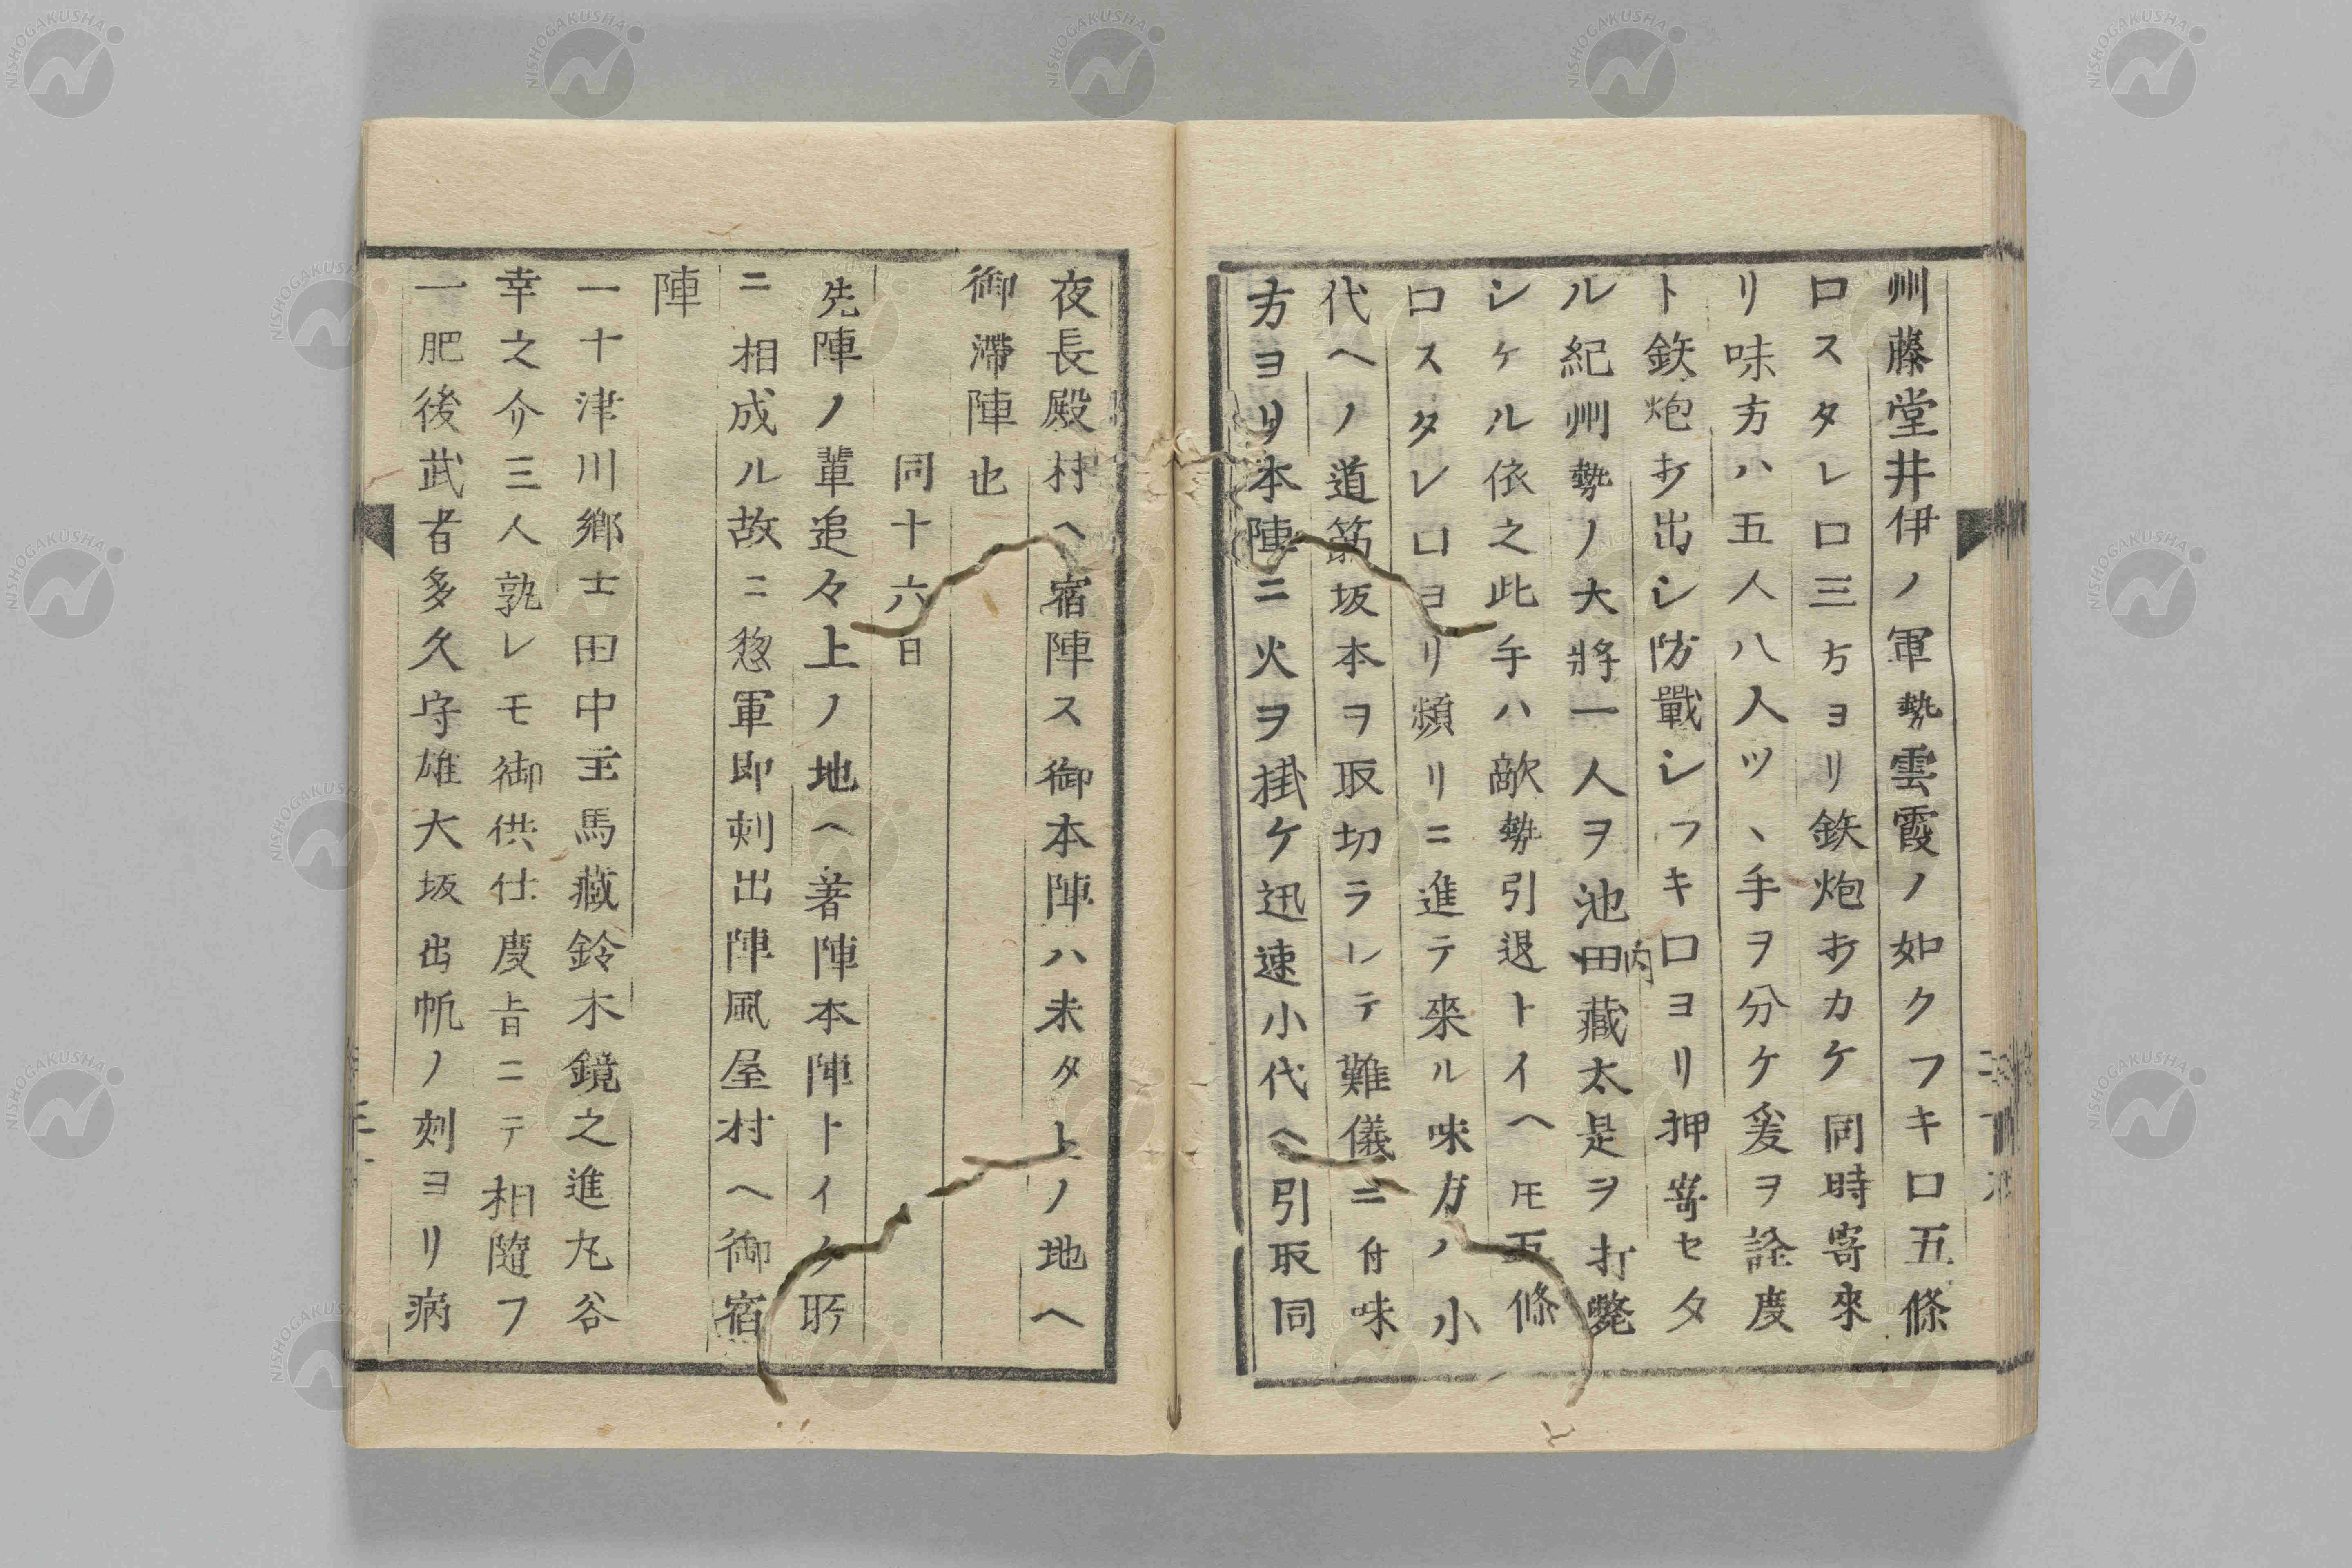 州藤堂井伊ノ軍勢雲霞ノ如クフキ口五條
口スタレ口三方ヨリ鉄炮打カケ同時寄來
リ味方ハ五人八人ツヽ手ヲ分ケ爰ヲ詮度
ト鉄炮打出シ防戰シフキ口ヨリ押寄セタ
ル紀州勢ノ大將一人ヲ池田藏太是ヲ打斃
内
シケル依之此手ハ敵勢引退トイヘ𪜈五條
口スタレ口ヨリ頻リニ進テ來ル味方ハ小
代ヘノ道筋坂本ヲ取切ラレテ難儀ニ付味
方ヨリ本陣ニ火ヲ掛ケ迅速小代ヘ引取同
夜長殿村ヘ宿陣ス御本陣ハ未タ上ノ地ヘ
御滯陣也
同十六日
先陣ノ輩追々上ノ地ヘ著陣本陣トイク所
ニ相成ル故ニ惣軍即刻出陣風屋村ヘ御宿
陣
一十津川郷士田中主馬藏鈴木鏡之進丸谷
幸之介三人孰レモ御供仕度旨ニテ相隨フ
一肥後武者多久守雄大坂出帆ノ刻ヨリ病
NISHOGAKUSHA